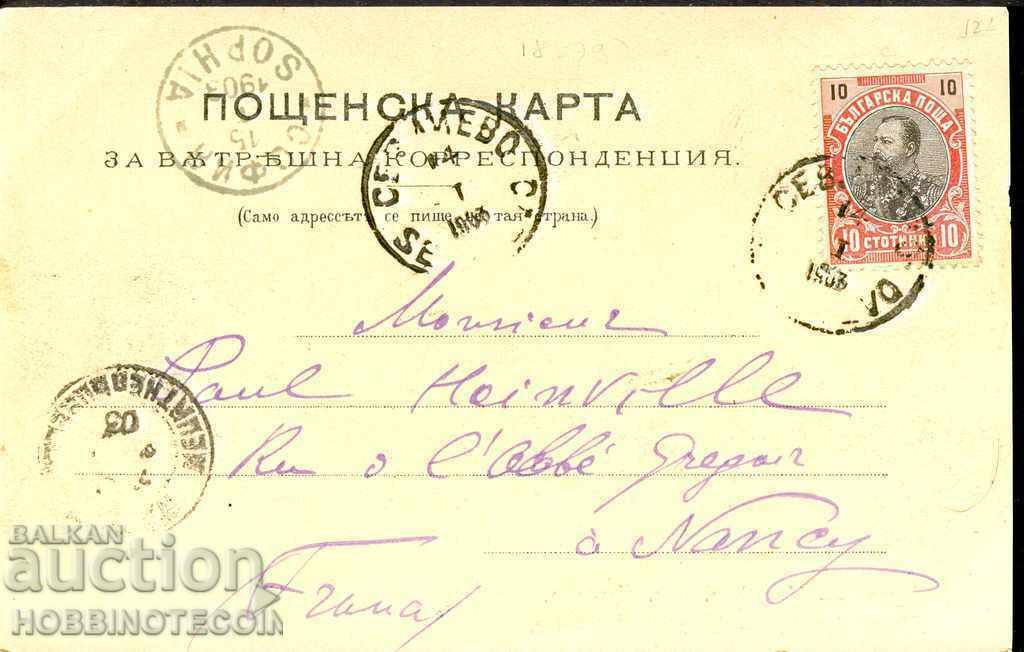 12
18-99
СОФИЯ
SOPHIA
15
1903
ПОЩЕНСКА КАРТА
ЗА ВѪТРѢШНА КОРРЕСПОНДЕНЦИЯ.
(Само адрессътъ се пише на тая страна.)
СЕВЛИЕВО
SE
14
I
1903
10 10
БЪЛГАРСКА ПОЩА
10 СТОТИНКИ 10
14
I
1903
Monsieur
Paul Hoinville
Rue de l'Abbé Grégoir
à Nancy
03
MEURTHE
BALKAN
auction
HOBBINOTECOIN